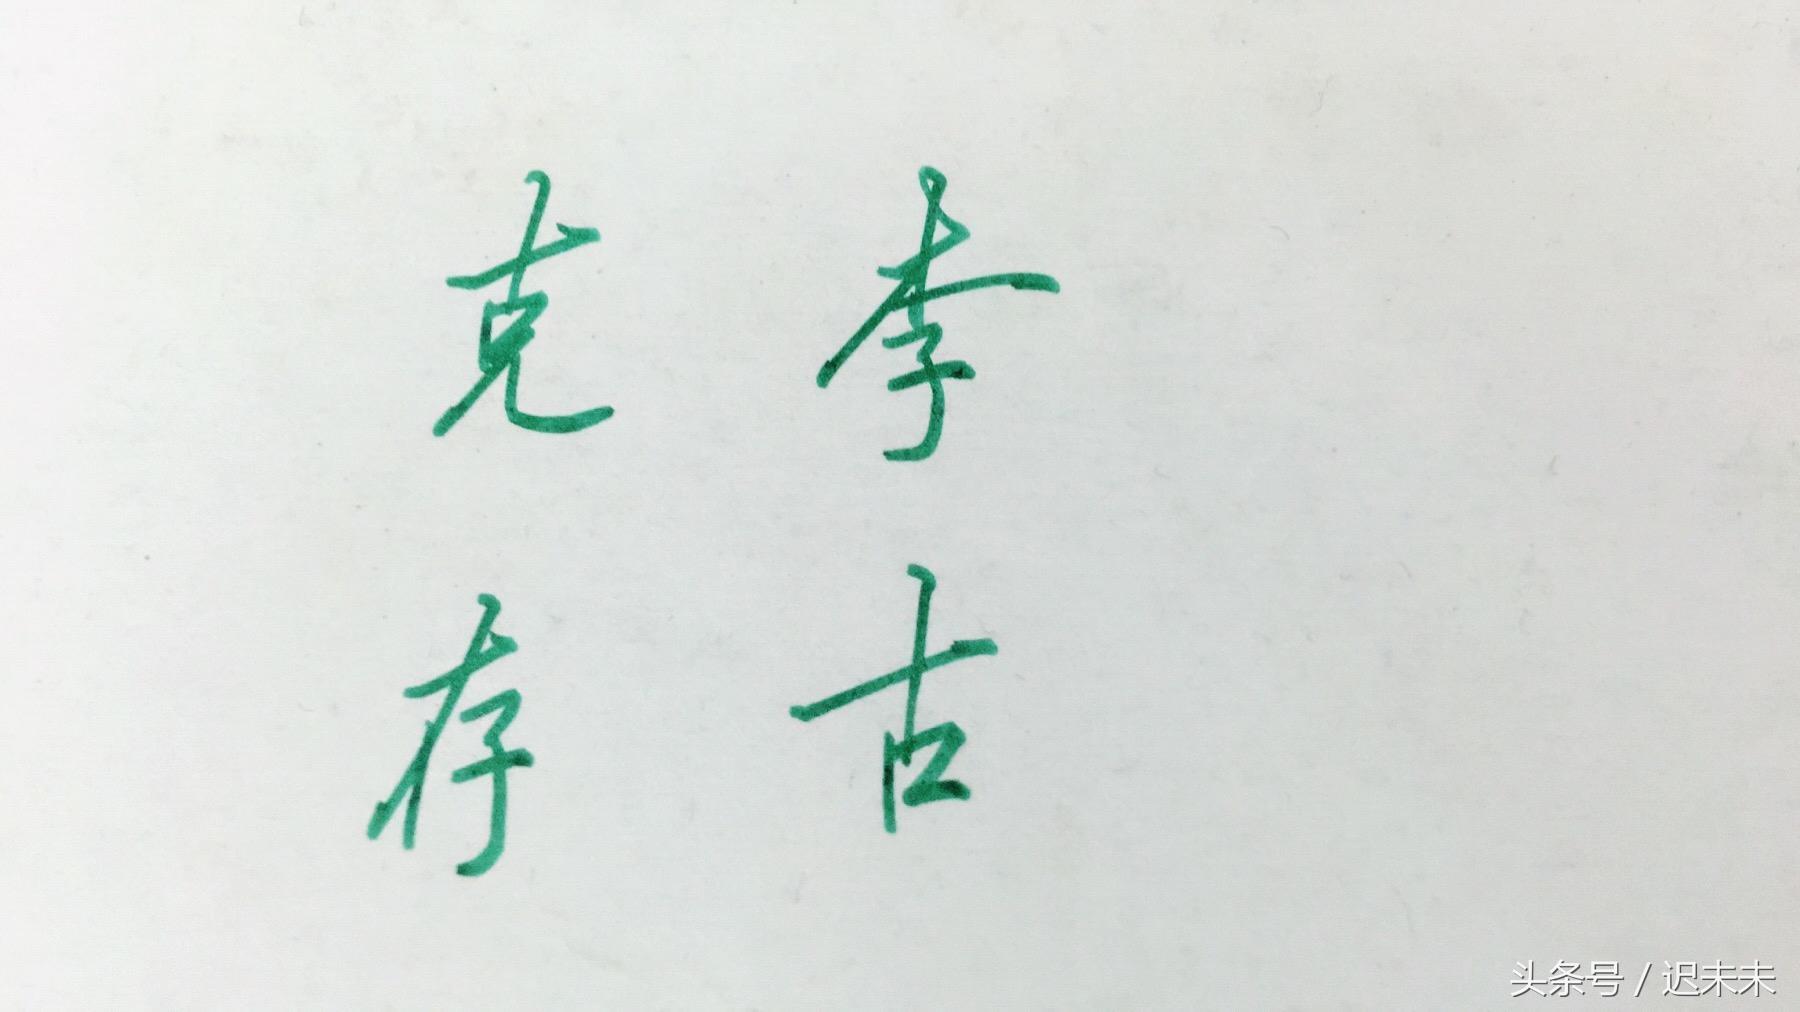 克 李
存 古
头条号 / 迟未未